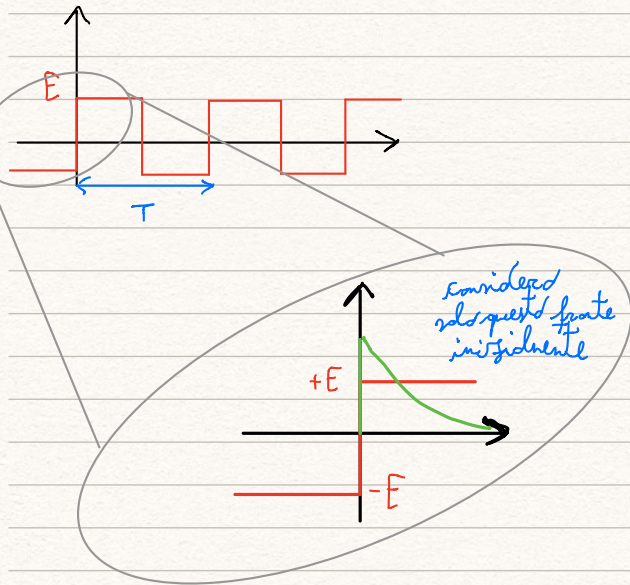 E
T
considero
solo questo fronte
inizialmente
+E
-E